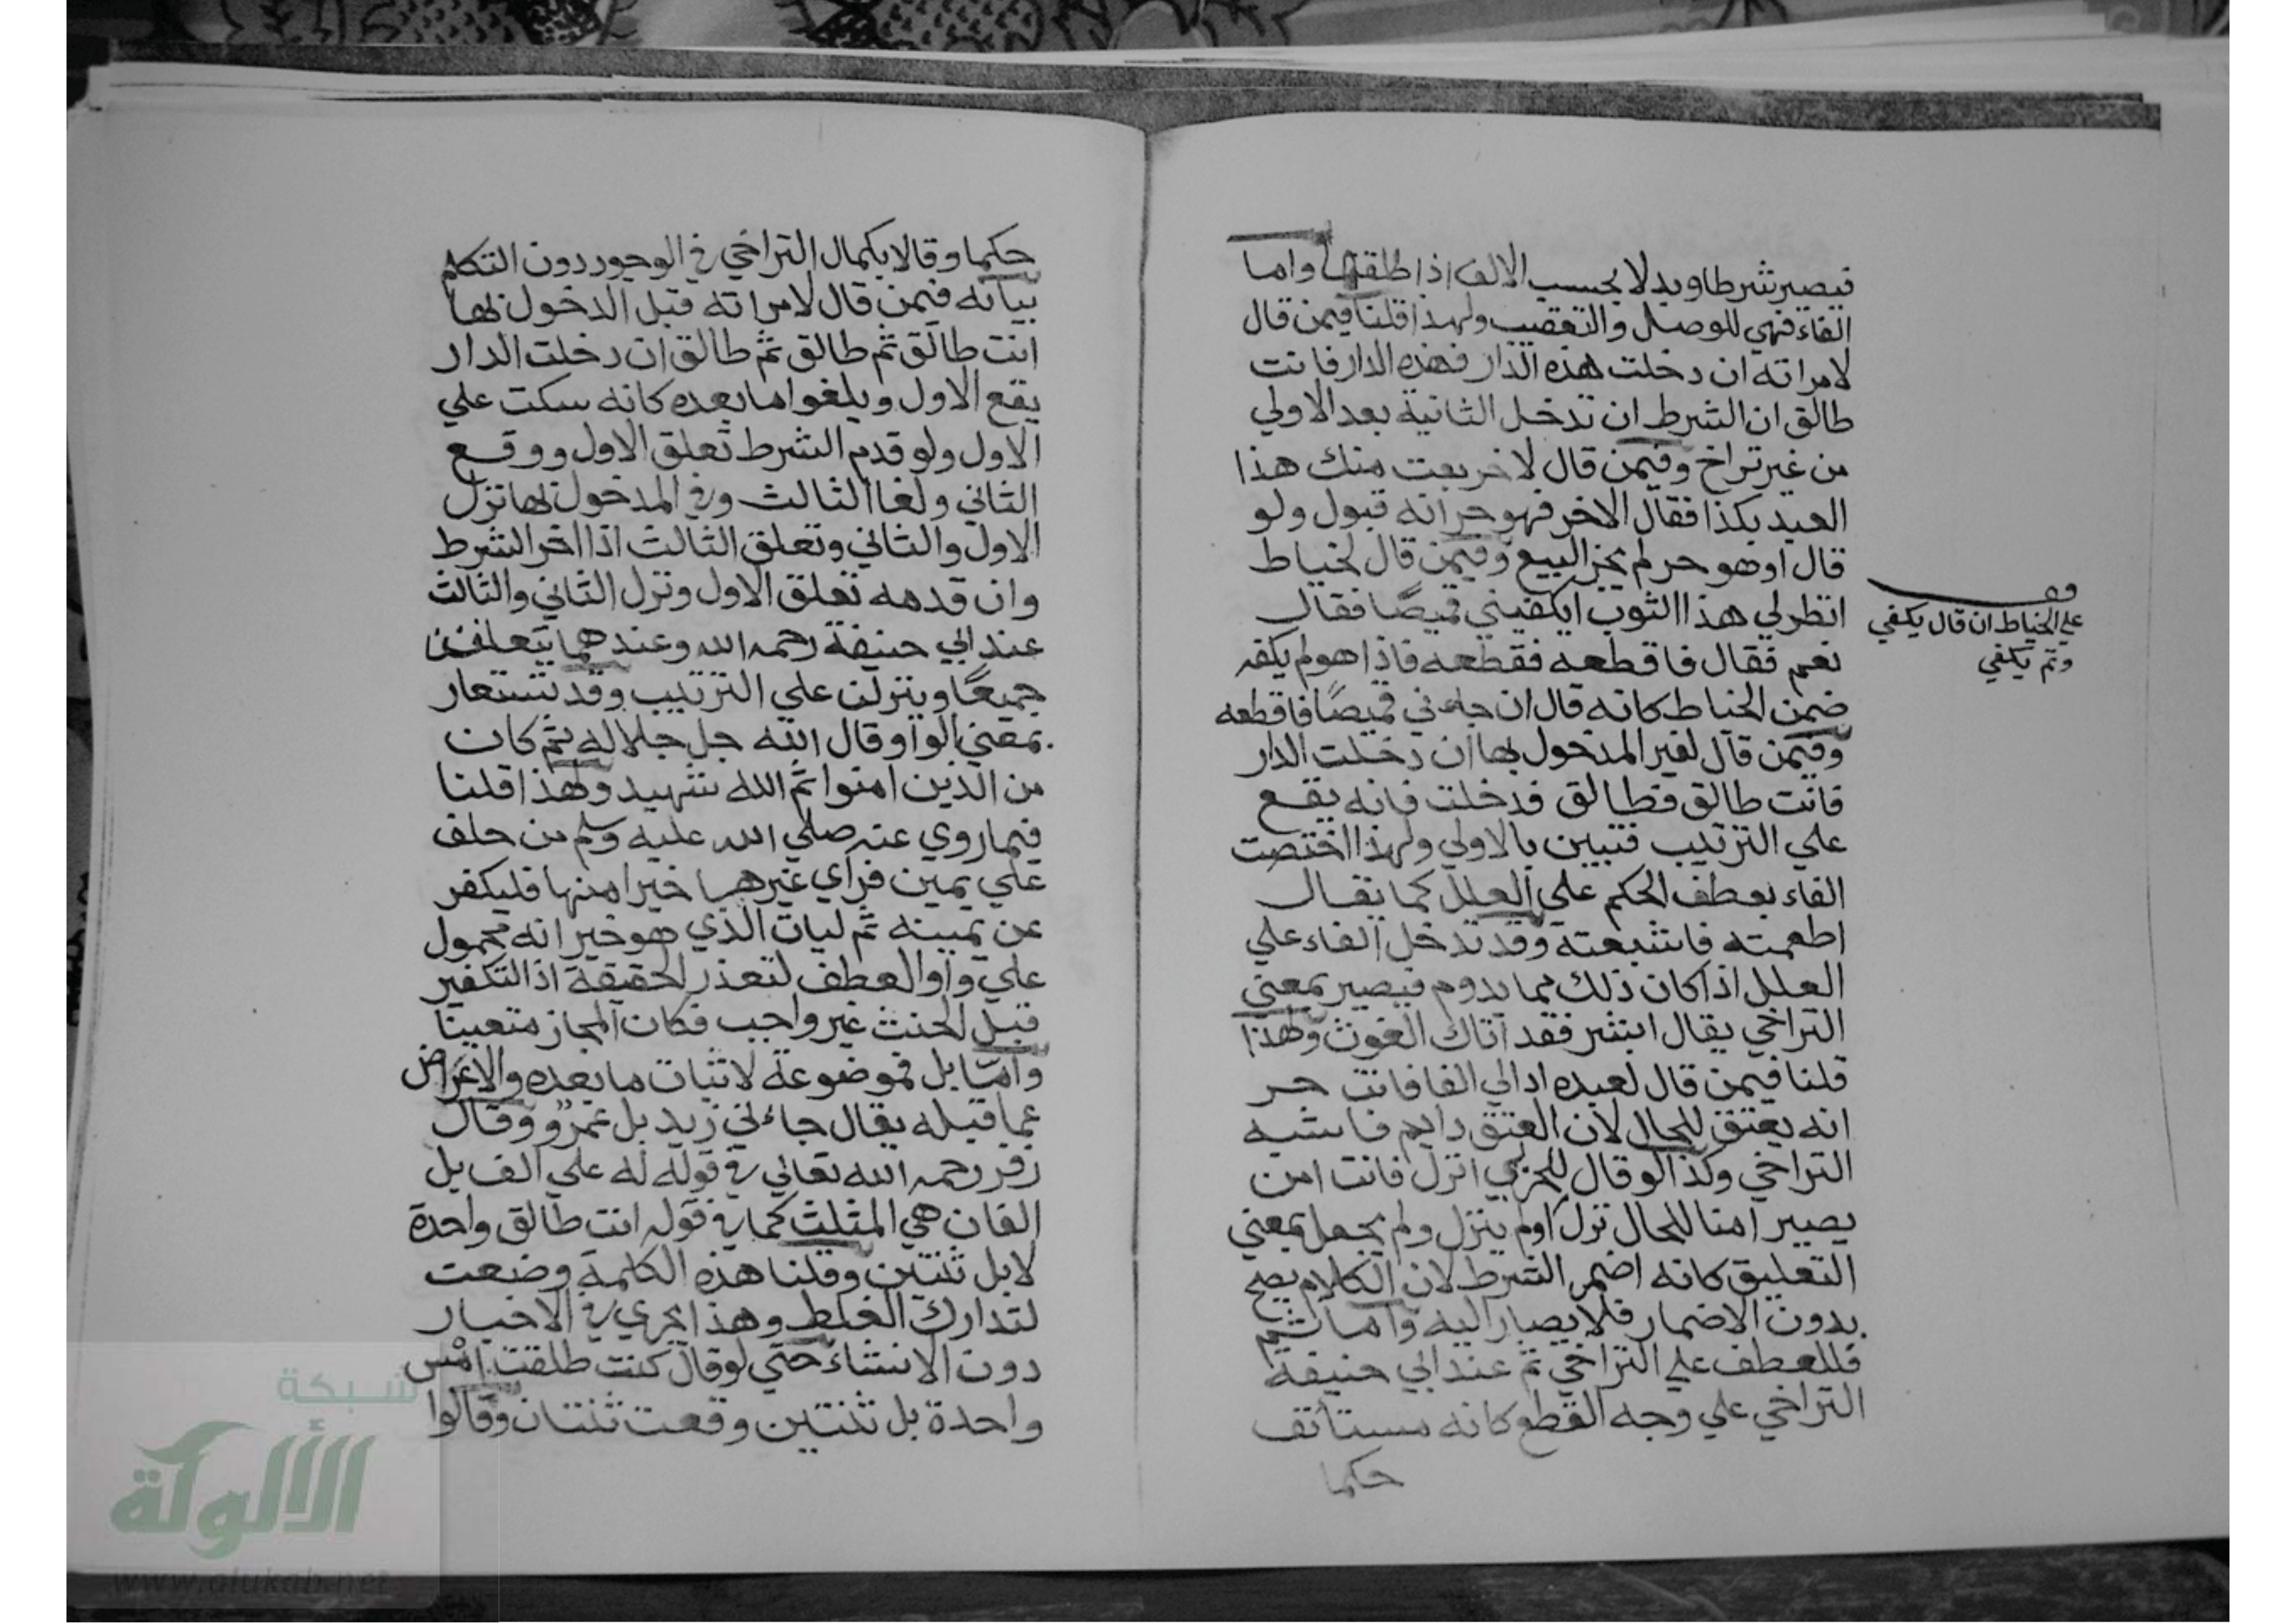 فيصير شرطا وبدلا بحسب الالف اذا طلقها واما
الفاء فهي للوصل والتعقيب ولهذا قلنا فيمن قال
لامراته ان دخلت هذه الدار فهذه الدار فانت
طالق ان الشرط ان تدخل الثانية بعد الاولي
من غير تراخ وفيمن قال لاخر بعت منك هذا
العبد بكذا فقال الاخر فهو حر انه قبول ولو
قال اوهو حر لم يجز البيع وفيمن قال لخياط
انظر لي هذا الثوب ايكفيني قميصًا فقال
نعم فقال فاقطعه فقطعه فاذا هو لم يكفه
ضمن الخياط كانه قال ان جاءني قميصًا فاقطعه
وفيمن قال لغير المدخول بها ان دخلت الدار
فانت طالق فطالق فدخلت فانه يقع
علي الترتيب فتبين بالاولي ولهذا اختصت
الفاء بعطف الحكم علي العلل كما يقال
اطعمته فاشبعته وقد تدخل الفاء علي
العلل اذا كان ذلك مما يدوم فيصير بمعني
التراخي يقال ابشر فقد اتاك الغوث ولهذا
قلنا فيمن قال لعبده اد الي الفا فانت حر
انه يعتق للحال لان العتق دايم فاشبه
التراخي وكذا لو قال للحربي انزل فانت امن
يصير امنا للحال نزل اولم ينزل ولم يجعل بمعني
التعليق كانه اضمر الشرط لان الكلام يصح
بدون الاضمار فلا يصار اليه واما ثم
فللعطف علي التراخي ثم عند ابي حنيفة
التراخي علي وجه القطع كانه مستانف
حكما
علي الخياط ان قال يكفي
ولم يكفي
حكما وقالا بكمال التراخي في الوجود دون التكلم
بيانه فيمن قال لامراته قبل الدخول بها
انت طالق ثم طالق ثم طالق ان دخلت الدار
يقع الاول ويلغوا ما بعده كانه سكت علي
الاول ولو قدم الشرط تعلق الاول ووقع
الثاني ولغا الثالث وفي المدخول بها نزل
الاول والثاني وتعلق الثالث اذا اخر الشرط
وان قدمه تعلق الاول ونزل الثاني والثالث
عند ابي حنيفة رحمه الله وعندهما يتعلقن
جميعًا وينزلن علي الترتيب وقد تستعار
بمعني الواو قال الله جل جلاله ثم كان
من الذين امنوا ثم الله شهيد ولهذا قلنا
فيما روي عنه صلي الله عليه وسلم من حلف
علي يمين فرأي غيرها خيرا منها فليكفر
عن يمينه ثم ليات الذي هو خير انه محمول
علي واو العطف لتعذر الحقيقة اذ التكفير
قبل الحنث غير واجب فكان المجاز متعينا
واما بل فموضوعة لاثبات ما بعده والاعراض
عما قبله يقال جاءني زيد بل عمرو وقال
زفر رحمه الله تعالي في قوله له علي الف بل
الفان هي المثلث كما في قوله انت طالق واحدة
لا بل ثنتين وقلنا هذه الكلمة وضعت
لتدارك الغلط وهذا يجري في الاخبار
دون الانشاء حتي لو قال كنت طلقت امس
واحدة بل ثنتين وقعت ثنتان وقالوا
شبكة
الألوكة
www.alukah.net